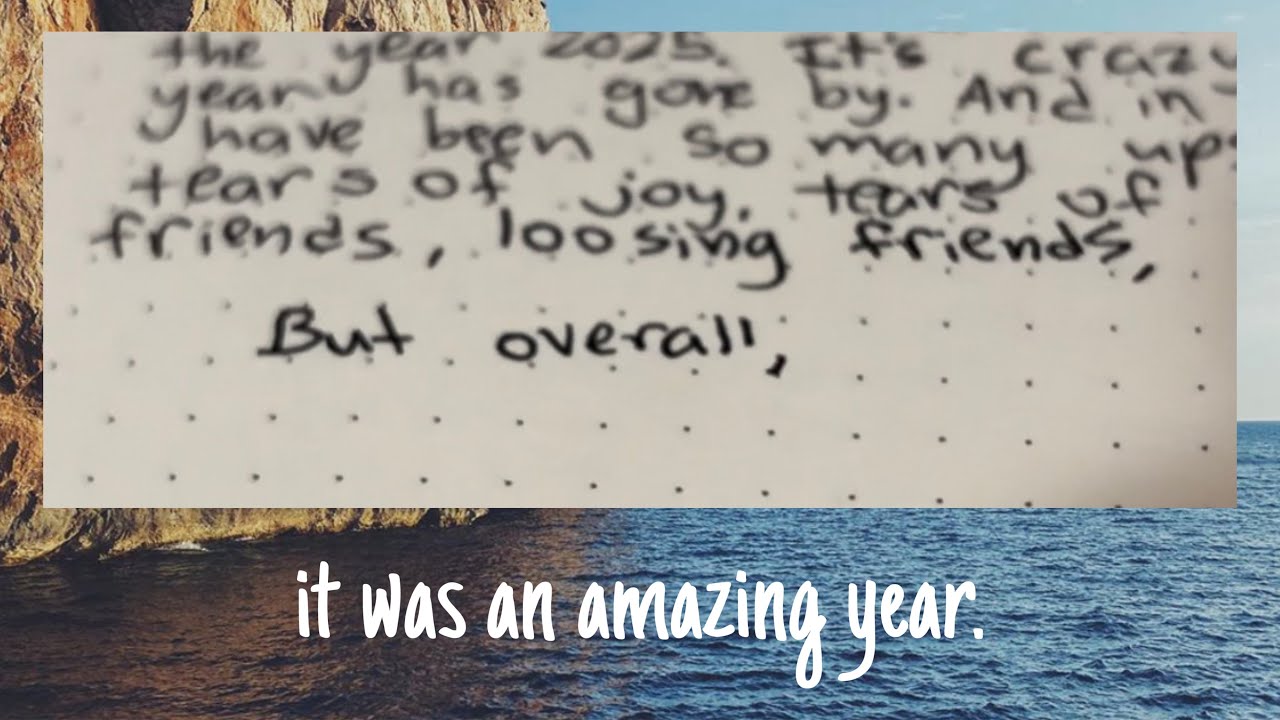 the year 2025. It's crazy
year has gone by. And in
have been so many ups
tears of joy, tears of
friends, loosing friends,
But overall,
it was an amazing year.